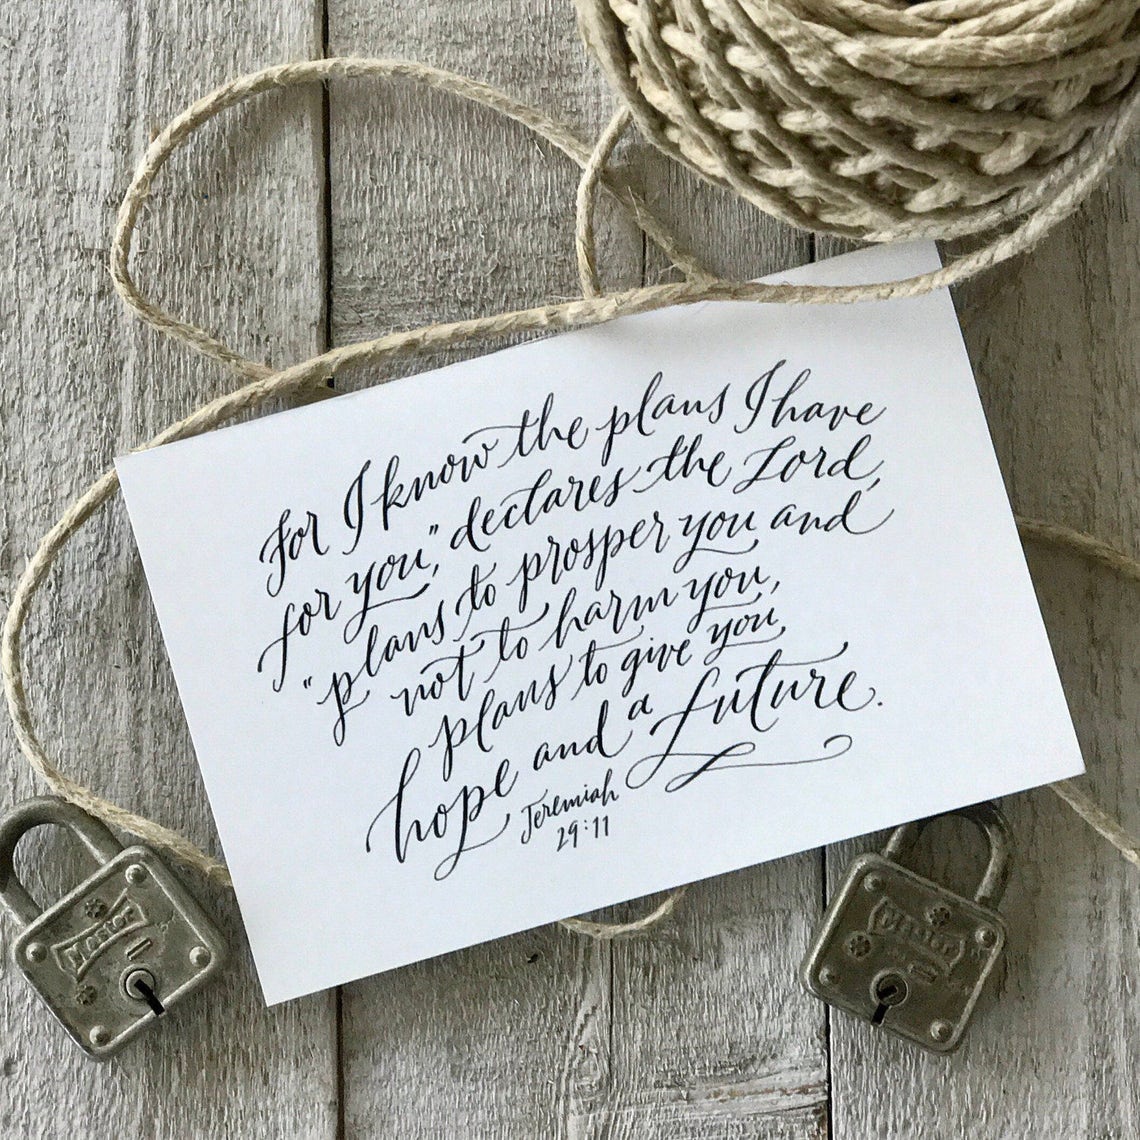 For I know the plans I have
for you," declares the Lord,
"plans to prosper you and
not to harm you,
plans to give you
hope and a future.
Jeremiah
29:11
Master
Master